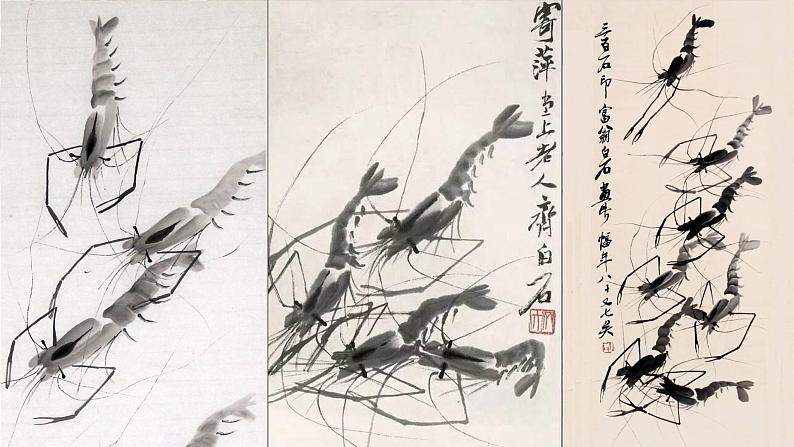 寄萍堂上老人齊白石
三百石印富翁白石畫此幅年八十又七矣